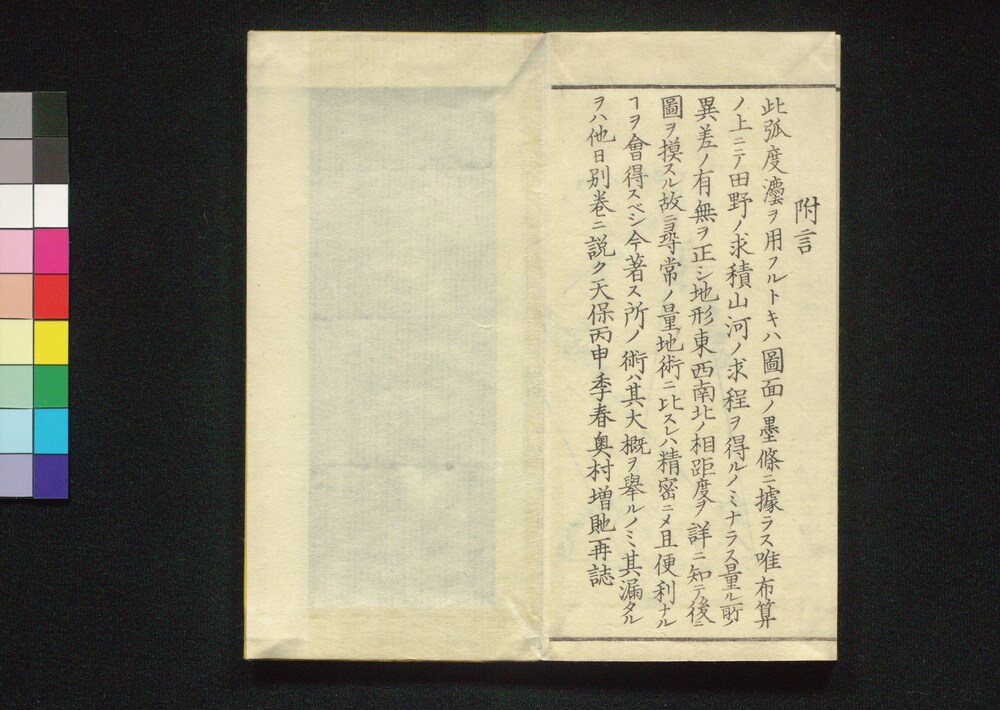 附言
此弧度瓊ヲ用フルトキハ圖面ノ墨條ニ據ラス唯布算
ノ上ニテ田野ノ求積山河ノ求程ヲ得ルノミナラス量ル所ノ
異差ノ有無ヲ正シ地形東西南北ノ相距度ヲ詳ニ知テ後ニ
圖ヲ摸スル故ニ尋常ノ量地術ニ比スレハ精密ニメ且便利ナル
ヿヲ會得スベシ今著ス所ノ術ハ其大概ヲ舉ルノミ其漏タル
ヲハ他日別卷ニ説ク天保丙申季春奥村増貤再誌